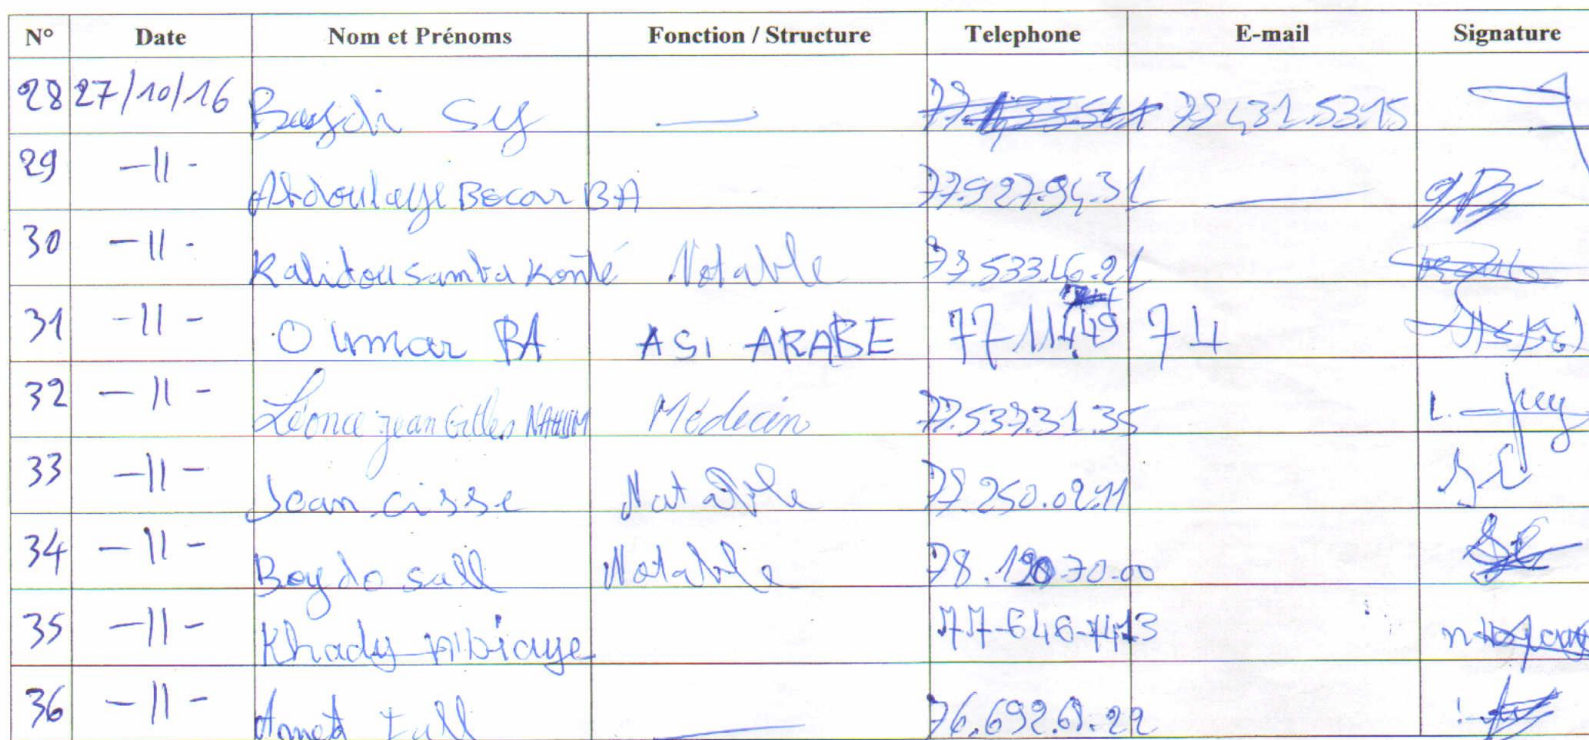 N° Date Nom et Prénoms Fonction / Structure Telephone E-mail Signature
28 27/10/16 Baydi Sy — 78,431.53.15
29 -11- Abdoulaye Becar BA 77.927.94.31 —
30 -11- Kalidou samba Konté Notable 77.533.16.21
31 -11- Oumar BA ASI ARABE 77 114 49 74
32 -11- Léonce Jean Gilles NAHUM Médecin 77.537.31.35
33 -11- Joan cisse Notable 77.250.02.11
34 -11- Boydo sall Notable 78.120.70.00
35 -11- Khady N'Diaye 77-646-74,13
36 -11- Amet tall — 76.692.69.22